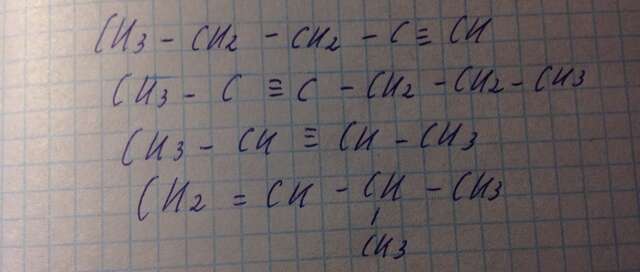 CH3 - CH2 - CH2 - C ≡ CH
CH3 - C ≡ C - CH2 - CH2 - CH3
CH3 - CH ≡ CH - CH3
CH2 = CH - CH - CH3
CH3